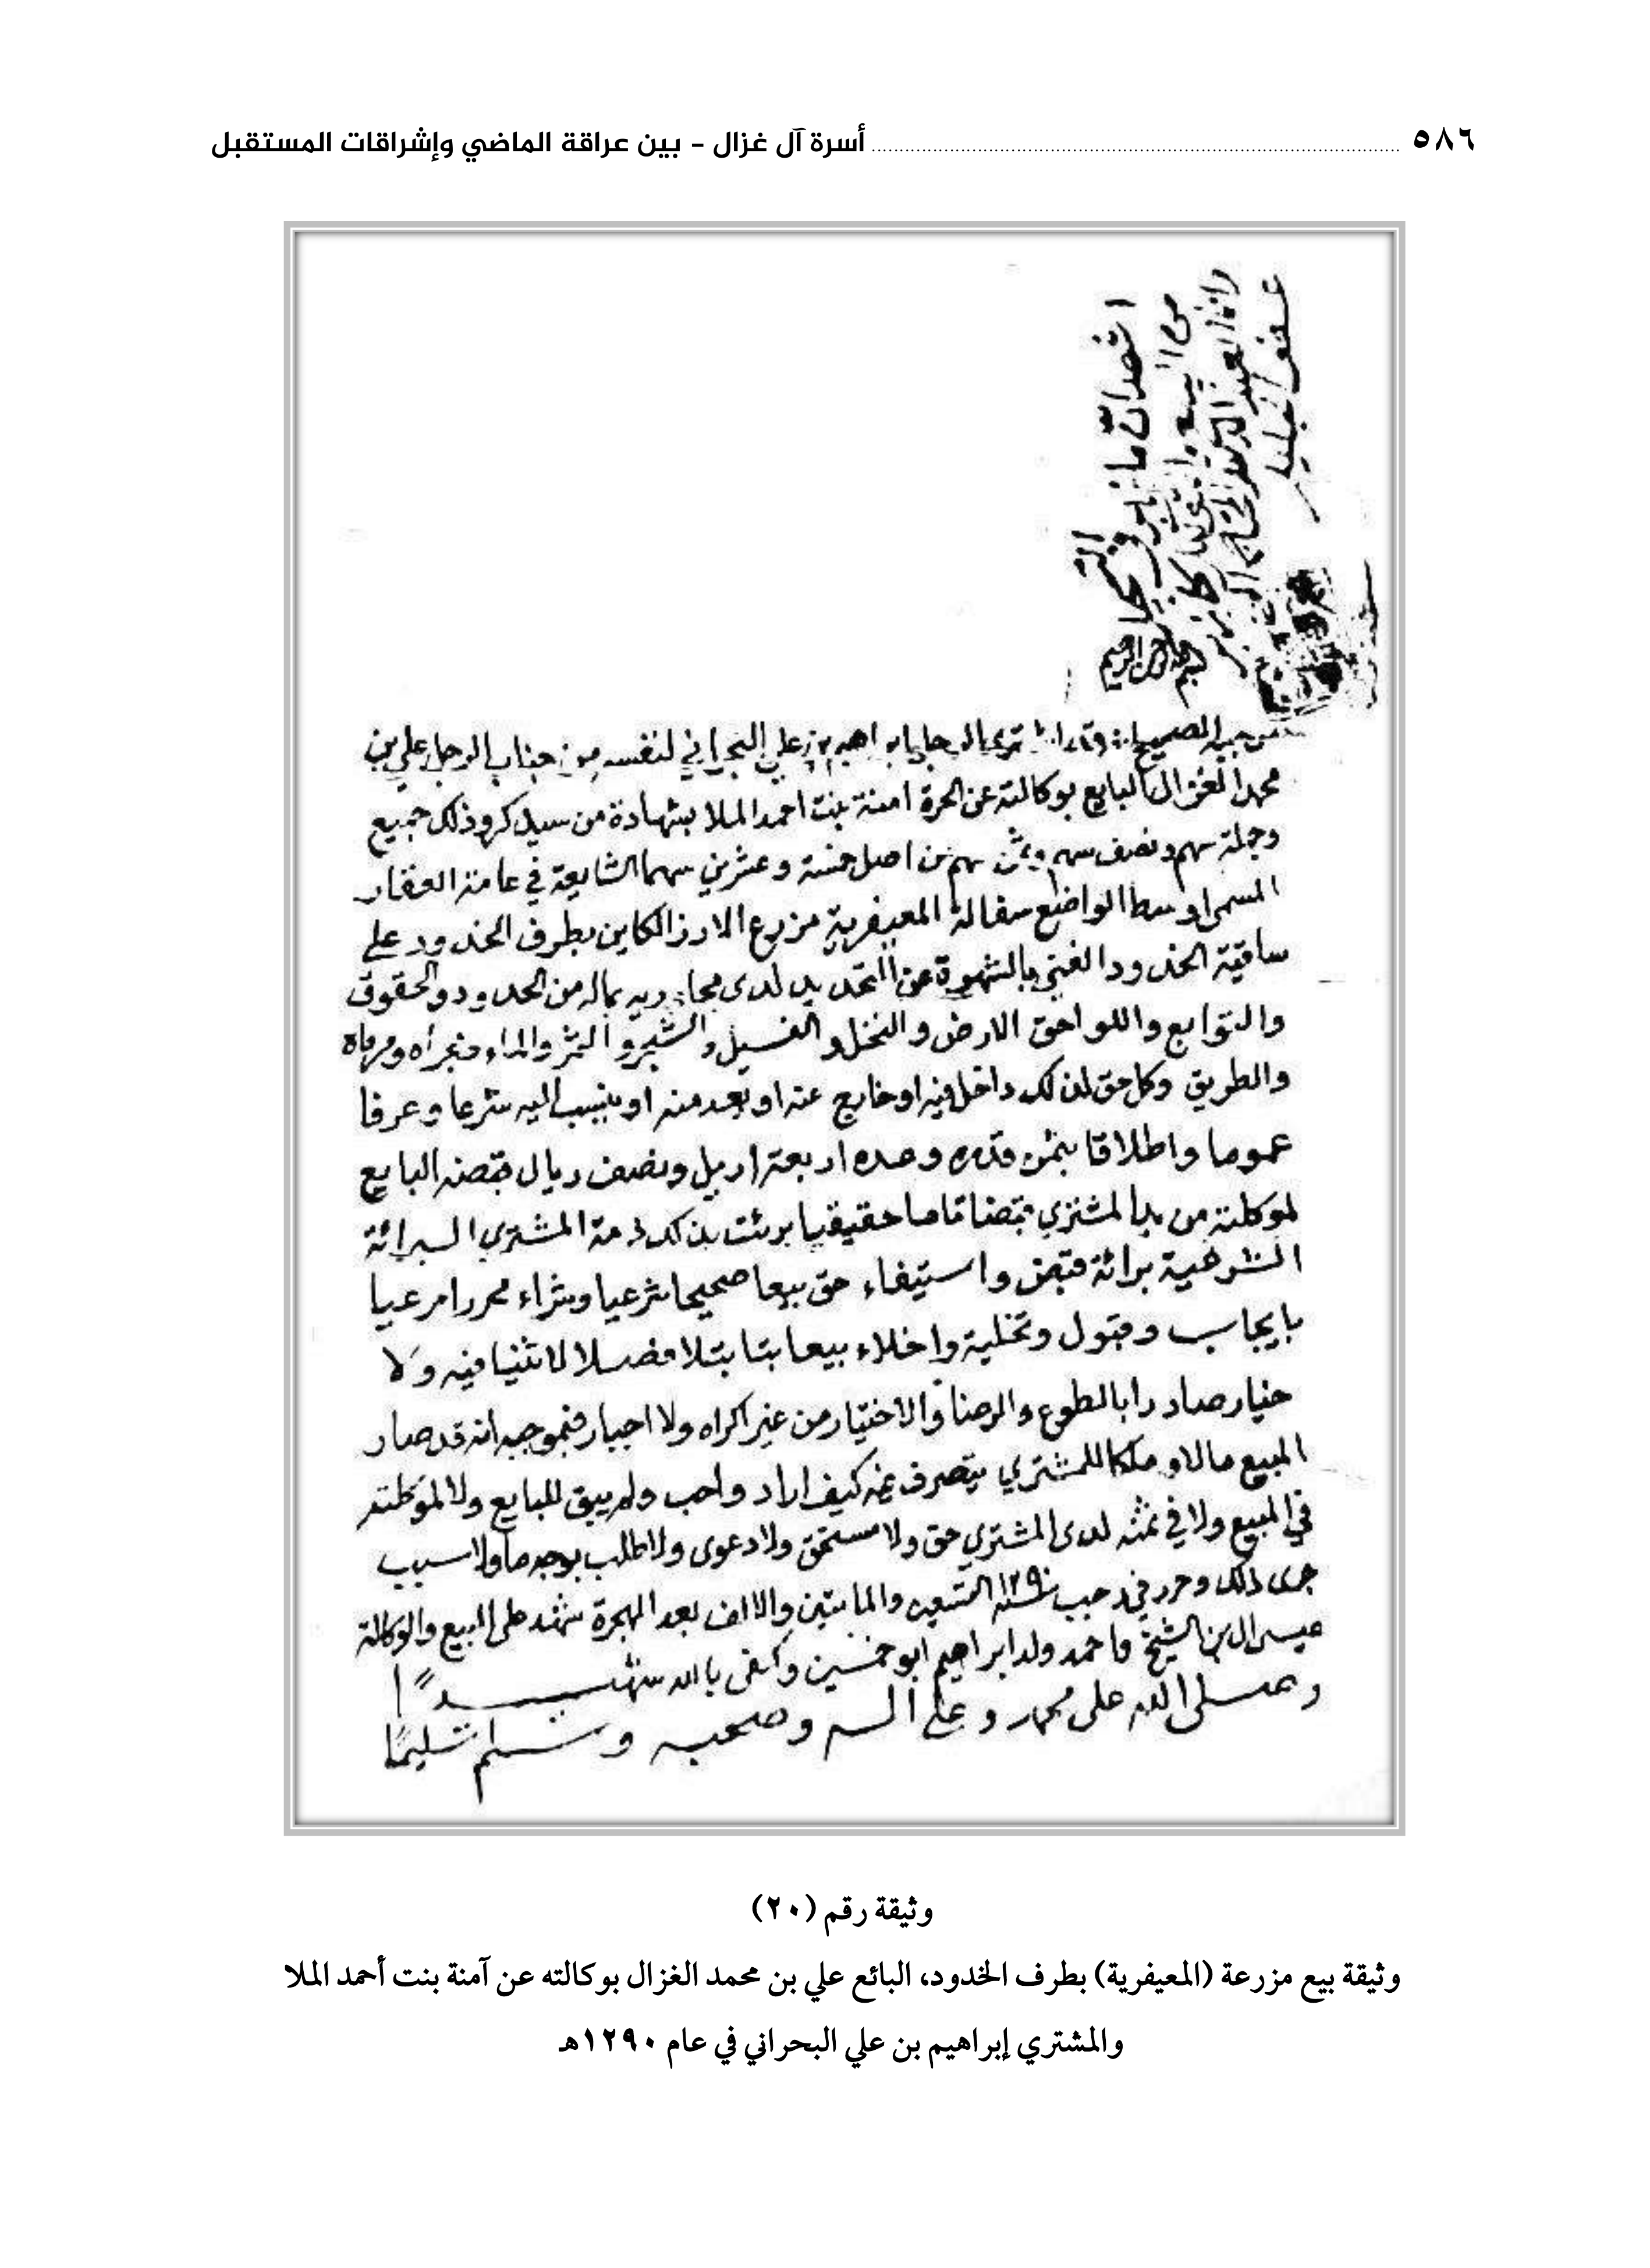 ٥٨٦ أسرة آل غزال - بين عراقة الماضي وإشراقات المستقبل
بسم الله الرحمن الرحيم
اشترى الرجل ابراهيم بن علي البحراني لنفسه من جناب الرجل علي بن
محمد الغزال البايع بوكالته عن الحرة امنة بنت احمد الملا بشهادة من سيذكر وذلك جميع
وجملة سهم ونصف سهم وثمن سهم من اصل خمسة وعشرين سهما الشايعة في عامة العقار
المسمى اوسط المعيفرية مزرع الارز الكاين بطرف الخدود على
ساقية الخدود الغني بالشهرة عن التحديد لدى مجاوريه بماله من الحدود والحقوق
والتوابع واللواحق الارض والنخل والفسيل والشجر والثمر والماء ومجراه ومرماه
والطريق وكل حق لذلك داخل فيه او خارج عنه او يعد منه او ينسب اليه شرعا وعرفا
عموما واطلاقا بثمن قدره وعده اربعة اريل ونصف ريال قبضه البايع
لموكلته من يد المشتري قبضا تاما حقيقيا برئت بذلك ذمة المشتري البرائة
الشرعية برائة قبض واستيفاء حق بيعا صحيحا شرعيا وشراء محررا مرعيا
بايجاب وقبول وتخلية واخلاء بيعا بتا بتلا فصلا لا ثنيا فيه ولا
خيار صادرا بالطوع والرضا والاختيار من غير اكراه ولا اجبار فبموجبه انه قد صار
المبيع مالا وملكا للمشتري يتصرف فيه كيف اراد واحب ولم يبق للبايع ولا لموكلته
في المبيع ولا في ثمنه لدى المشتري حق ولا مستحق ولا دعوى ولا طلب بوجه ما ولا سبب
جرى ذلك وحرر في رجب سنة ١٢٩٠ التسعين والمايتين والالف بعد الهجرة شهد على البيع والوكالة
عيسى ال بن الشيخ واحمد ولد ابراهيم ابو خمسين وكفى بالله شهيدًا
وصلى الله على محمد وعلى اله وصحبه وسلم تسليمًا
وثيقة رقم (٢٠)
وثيقة بيع مزرعة (المعيفرية) بطرف الخدود، البائع علي بن محمد الغزال بوكالته عن آمنة بنت أحمد الملا
والمشتري إبراهيم بن علي البحراني في عام ١٢٩٠هـ